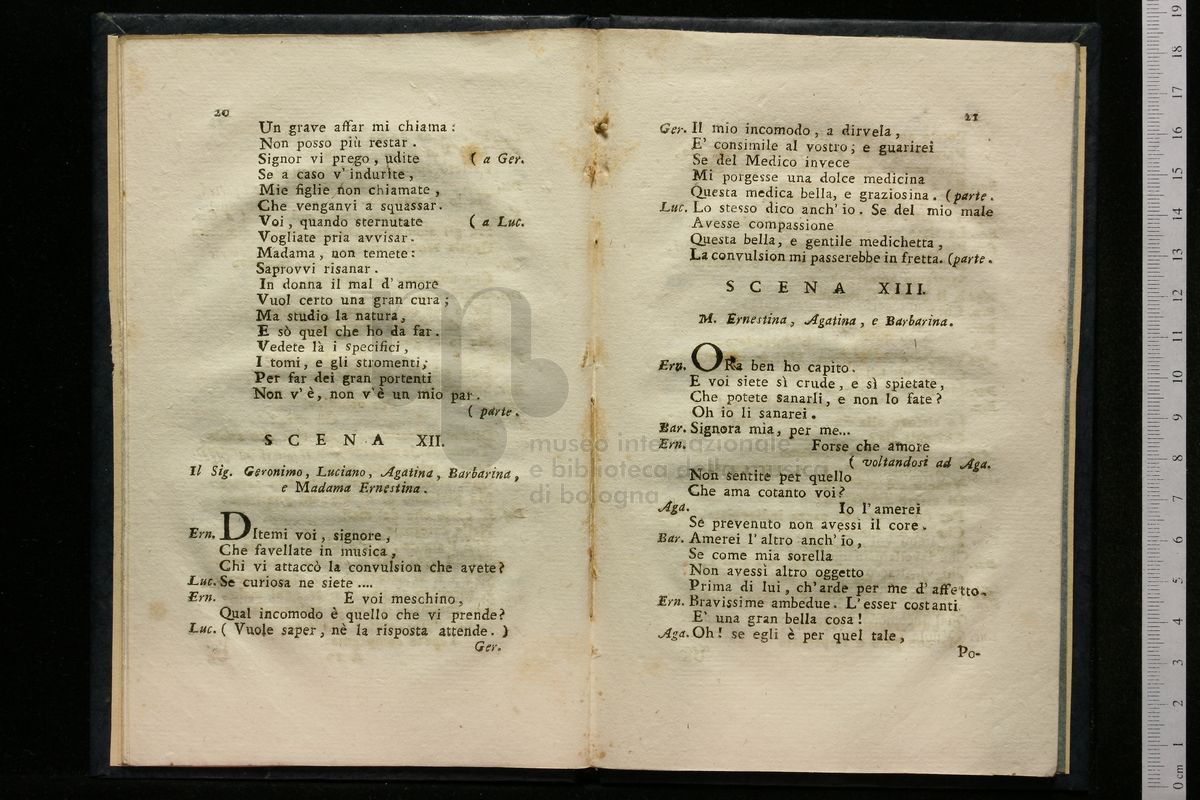 20
Un grave affar mi chiama :
Non posso più restar .
Signor vi prego , udite ( a Ger.
Se a caso v' indurìte ,
Mie figlie non chiamate ,
Che venganvi a squassar .
Voi , quando sternutate ( a Luc.
Vogliate pria avvisar .
Madama , non temete :
Saprovvi risanar .
In donna il mal d' amore
Vuol certo una gran cura ;
Ma studio la natura ,
E sò quel che ho da far .
Vedete là i specifici ,
I tomi , e gli stromenti ;
Per far dei gran portenti
Non v' è , non v' è un mio par .
( parte .
SCENA XII.
Il Sig. Geronimo , Luciano , Agatina , Barbarina ,
e Madama Ernestina .
Ern. DItemi voi , signore ,
Che favellate in musica ,
Chi vi attaccò la convulsion che avete ?
Luc. Se curiosa ne siete ....
Ern. E voi meschino ,
Qual incomodo è quello che vi prende ?
Luc. ( Vuole saper , nè la risposta attende . )
Ger.
21
Ger. Il mio incomodo , a dirvela ,
E' consimile al vostro ; e guarirei
Se del Medico invece
Mi porgesse una dolce medicina
Questa medica bella , e graziosina . ( parte .
Luc. Lo stesso dico anch' io . Se del mio male
Avesse compassione
Questa bella , e gentile medichetta ,
La convulsion mi passerebbe in fretta . ( parte .
SCENA XIII.
M. Ernestina , Agatina , e Barbarina .
Ern. ORa ben ho capito .
E voi siete sì crude , e sì spietate ,
Che potete sanarli , e non lo fate ?
Oh io li sanarei .
Bar. Signora mia , per me ...
Ern. Forse che amore
( voltandosi ad Aga.
Non sentite per quello
Che ama cotanto voi ?
Aga. Io l' amerei
Se prevenuto non avessi il core .
Bar. Amerei l' altro anch' io ,
Se come mia sorella
Non avessi altro oggetto
Prima di lui , ch' arde per me d' affetto .
Ern. Bravissime ambedue . L' esser costanti
E' una gran bella cosa !
Aga. Oh ! se egli è per quel tale ,
Po-
museo internazionale
e biblioteca della musica
di bologna
0 cm 1 2 3 4 5 6 7 8 9 10 11 12 13 14 15 16 17 18 19